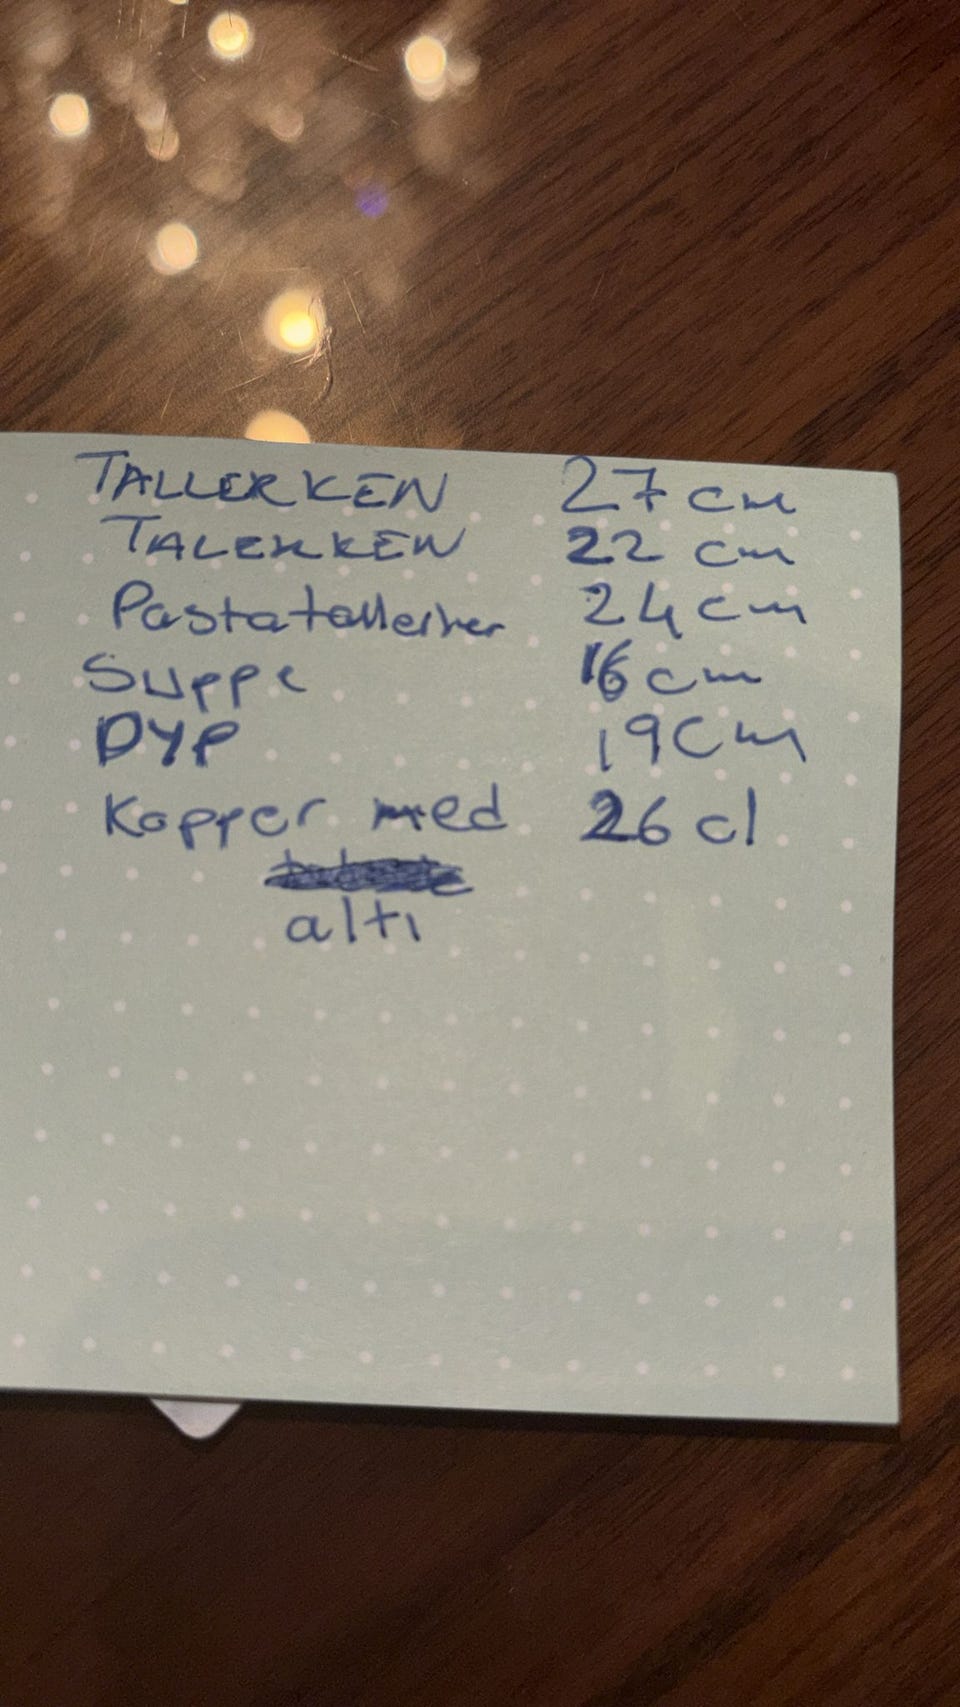 TALLERKEN 27 cm
TALERKEN 22 cm
Pastatallerker 24 cm
Suppe 16 cm
DYP 19 cm
Kopper med 26 cl
alti